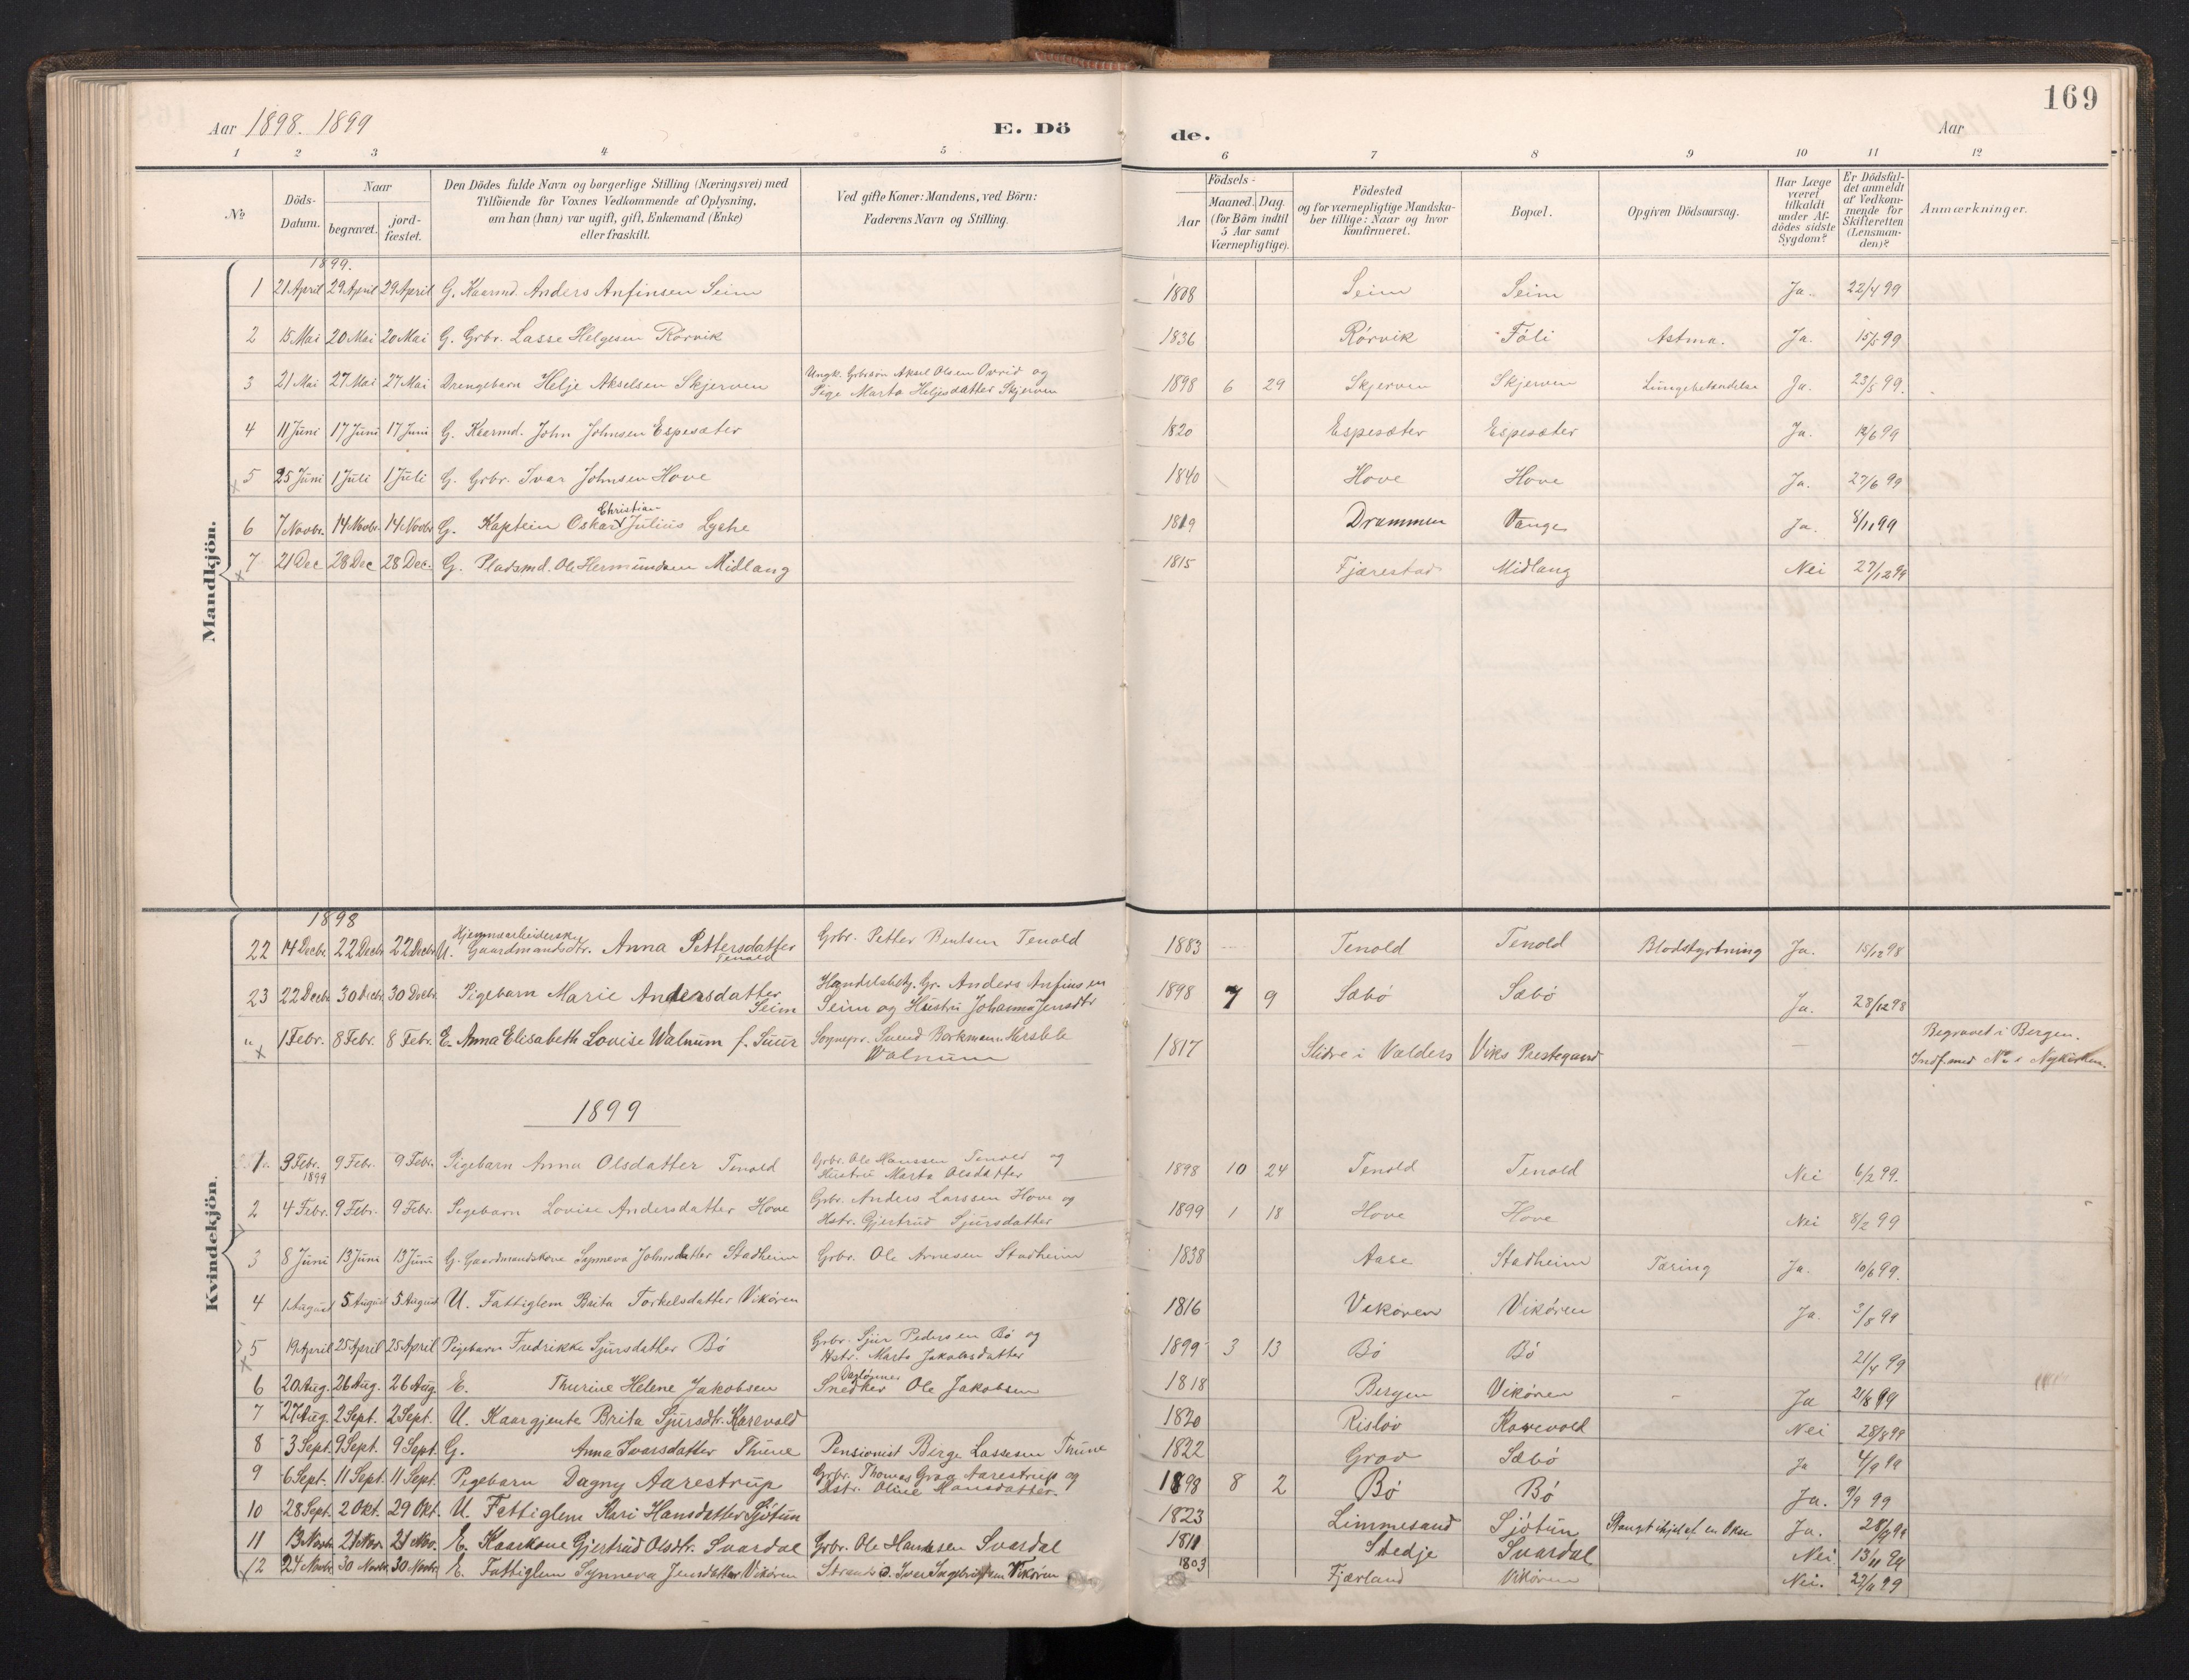 169
Aar 1898. 1899 E. Dö de. Aar
1 2 3 4 5 6 7 8 9 10 11 12
No
Döds-Datum.
Naar
begravet. jordfæstet.
Den Dödes fulde Navn og borgerlige Stilling (Næringsvei) med
Tilföiende for Voxnes Vedkommende af Oplysning,
om han (hun) var ugift, gift, Enkemand (Enke)
eller fraskilt.
Ved gifte Koner: Mandens, ved Börn:
Faderens Navn og Stilling.
Födsels-
Aar
Maaned. Dag.
(for Börn indtil
5 Aar samt
Værnepligtige).
Födested
og for værnepligtige Mandska-
ber tillige: Naar og hvor
konfirmeret.
Bopæl.
Opgiven Dödsaarsag.
Har Læge
været
tilkaldt
under Af-
dödes sidste
Sygdom?
Er Dödsfal-
det anmeldt
af Vedkom-
mende for
Skifteretten
(Lensman-
den)?
Anmærkninger.
Mandkjön.
1899.
1 21 April 29 April 29 April G. Kaarmd. Anders Anfinsen Seim 1808 Seim Seim Ja. 22/4 99
2 15 Mai 20 Mai 20 Mai G. Grbr. Lasse Helgesen Rörvik 1836 Rörvik Föli Astma. Ja. 15/5 99
3 21 Mai 27 Mai 27 Mai Drengebarn Helje Akselsen Skjerven Ungk. Grbrsön Aksel Olsen Ovrid og
Pige Marta Heljesdatter Skjerven 1898 6 29 Skjerven Skjerven Lungebetændelse Ja. 23/5 99.
4 11 Juni 17 Juni 17 Juni G. Kaarmd. John Johnsen Espesæter 1820 Espesæter Espesæter Ja. 12/6 99
5 25 Juni 1 Juli 1 Juli G. Grbr. Ivar Johnsen Hove 1840 Hove Hove Ja. 27/6 99
Christian
6 7 Novbr. 14 Novbr. 14 Novbr. G. Kaptein Oskar Julius Lyche 1819 Drammen Vange Ja. 8/11 99
7 21 Dec 28 Dec 28 Dec. G. Pladsmd. Ole Hermundsen Midlang 1815 Fjærestad Midlang Nei 27/12 99
Kvindekjön.
1898
Hjemmearbeiderske
22 14 Decbr. 22 Decbr 22 Decbr U. Gaardmandsdtr. Anna Pettersdatter
Tenold Grbr. Petter Bentsen Tenold 1883 Tenold Tenold Blodstyrtning Ja. 15/12 98
23 22 Decbr 30 Decbr 30 Decbr. Pigebarn Marie Andersdatter
Seim Handelsbetj. Gr. Anders Anfinsen
Seim og Hustru Johanna Jensdtr 1898 7 9 Sæbö Sæbö Ja. 28/12 98
" 1 Febr. 8 Febr. 8 Febr. E. Anna Elisabeth Lovise Walnum f. Suur Sognepr. Svend Borkmann Hersleb
Walnum 1817 Slidre i Valders Viks Prestegaard — Begravet i Bergen.
Indf. med No i Nykirken.
1899
1. 3 Febr. 9 Febr. 9 Febr. Pigebarn Anna Olsdatter Tenold Grbr. Ole Hanssen Tenold og
1899 Hustru Marta Olsdatter 1898 10 24 Tenold Tenold Nei 6/2 99.
2 4 Febr. 9 Febr. 9 Febr. Pigebarn Lovise Andersdatter Hove Grbr. Anders Larssen Hove og
Hstr. Gjertrud Sjursdatter 1899 1 18 Hove Hove Nei 8/2 99
3 8 Juni 13 Juni 13 Juni G. Gaardmandskone Synneva Johnsdatter Stadheim Grbr. Ole Arnesen Stadheim 1838 Aase Stadheim Tæring Ja. 10/6 99.
4 1 August 5 August 5 August U. Fattiglem Brita Torkelsdatter Vikören 1816 Vikören Vikören Ja. 3/8 99
5 19 April 25 April 25 April Pigebarn Fredrikke Sjursdatter Bö Grbr. Sjur Pedersen Bö og
Hstr. Marta Jakobsdatter 1899 3 13 Bö Bö 21/4 99
6 20 Aug. 26 Aug. 26 Aug. E. Thurine Helene Jakobsen Snedker Ole Jakobsen 1818 Bergen Vikören Ja 21/8 99
7 27 Aug. 2 Sept. 2 Sept. U. Kaargjente Brita Sjursdtr. Karevold 1820 Risløv Karevold Nei 28/8 99
8 3 Sept. 9 Sept. 9 Sept. G. Anna Ivarsdatter Thune Pensionist Berge Lassesen Thune 1822 Grov Sæbö Ja 4/9 99
9 6 Sept. 11 Sept. 11 Sept. Pigebarn Dagny Aarestrup Grbr. Thomas Grag Aarestrup og
Hstr. Oline Hansdatter. 1898 8 2 Bö Bö Ja. 9/9 99
10 28 Sept. 2 Okt. 29 Okt. U. Fattiglem Kari Hansdatter Sjötun 1823 Limmesand Sjötun Stanget ihjel af en Okse Ja. 28/9 99
11 13 Novb. 21 Nov. 21 Nov. E. Kaarkone Gjertrud Olsdtr. Svardal Grbr. Ole Hansen Svardal 1811 Stedje Svardal Nei 13/11 99
12 24 Novbr. 30 Novbr. 30 Novbr. E. Fattiglem Synneva Jensdatter Vikören Iver Ingebrigtsen Vikören 1803 Fjærland Vikören Nei. 27/11 99